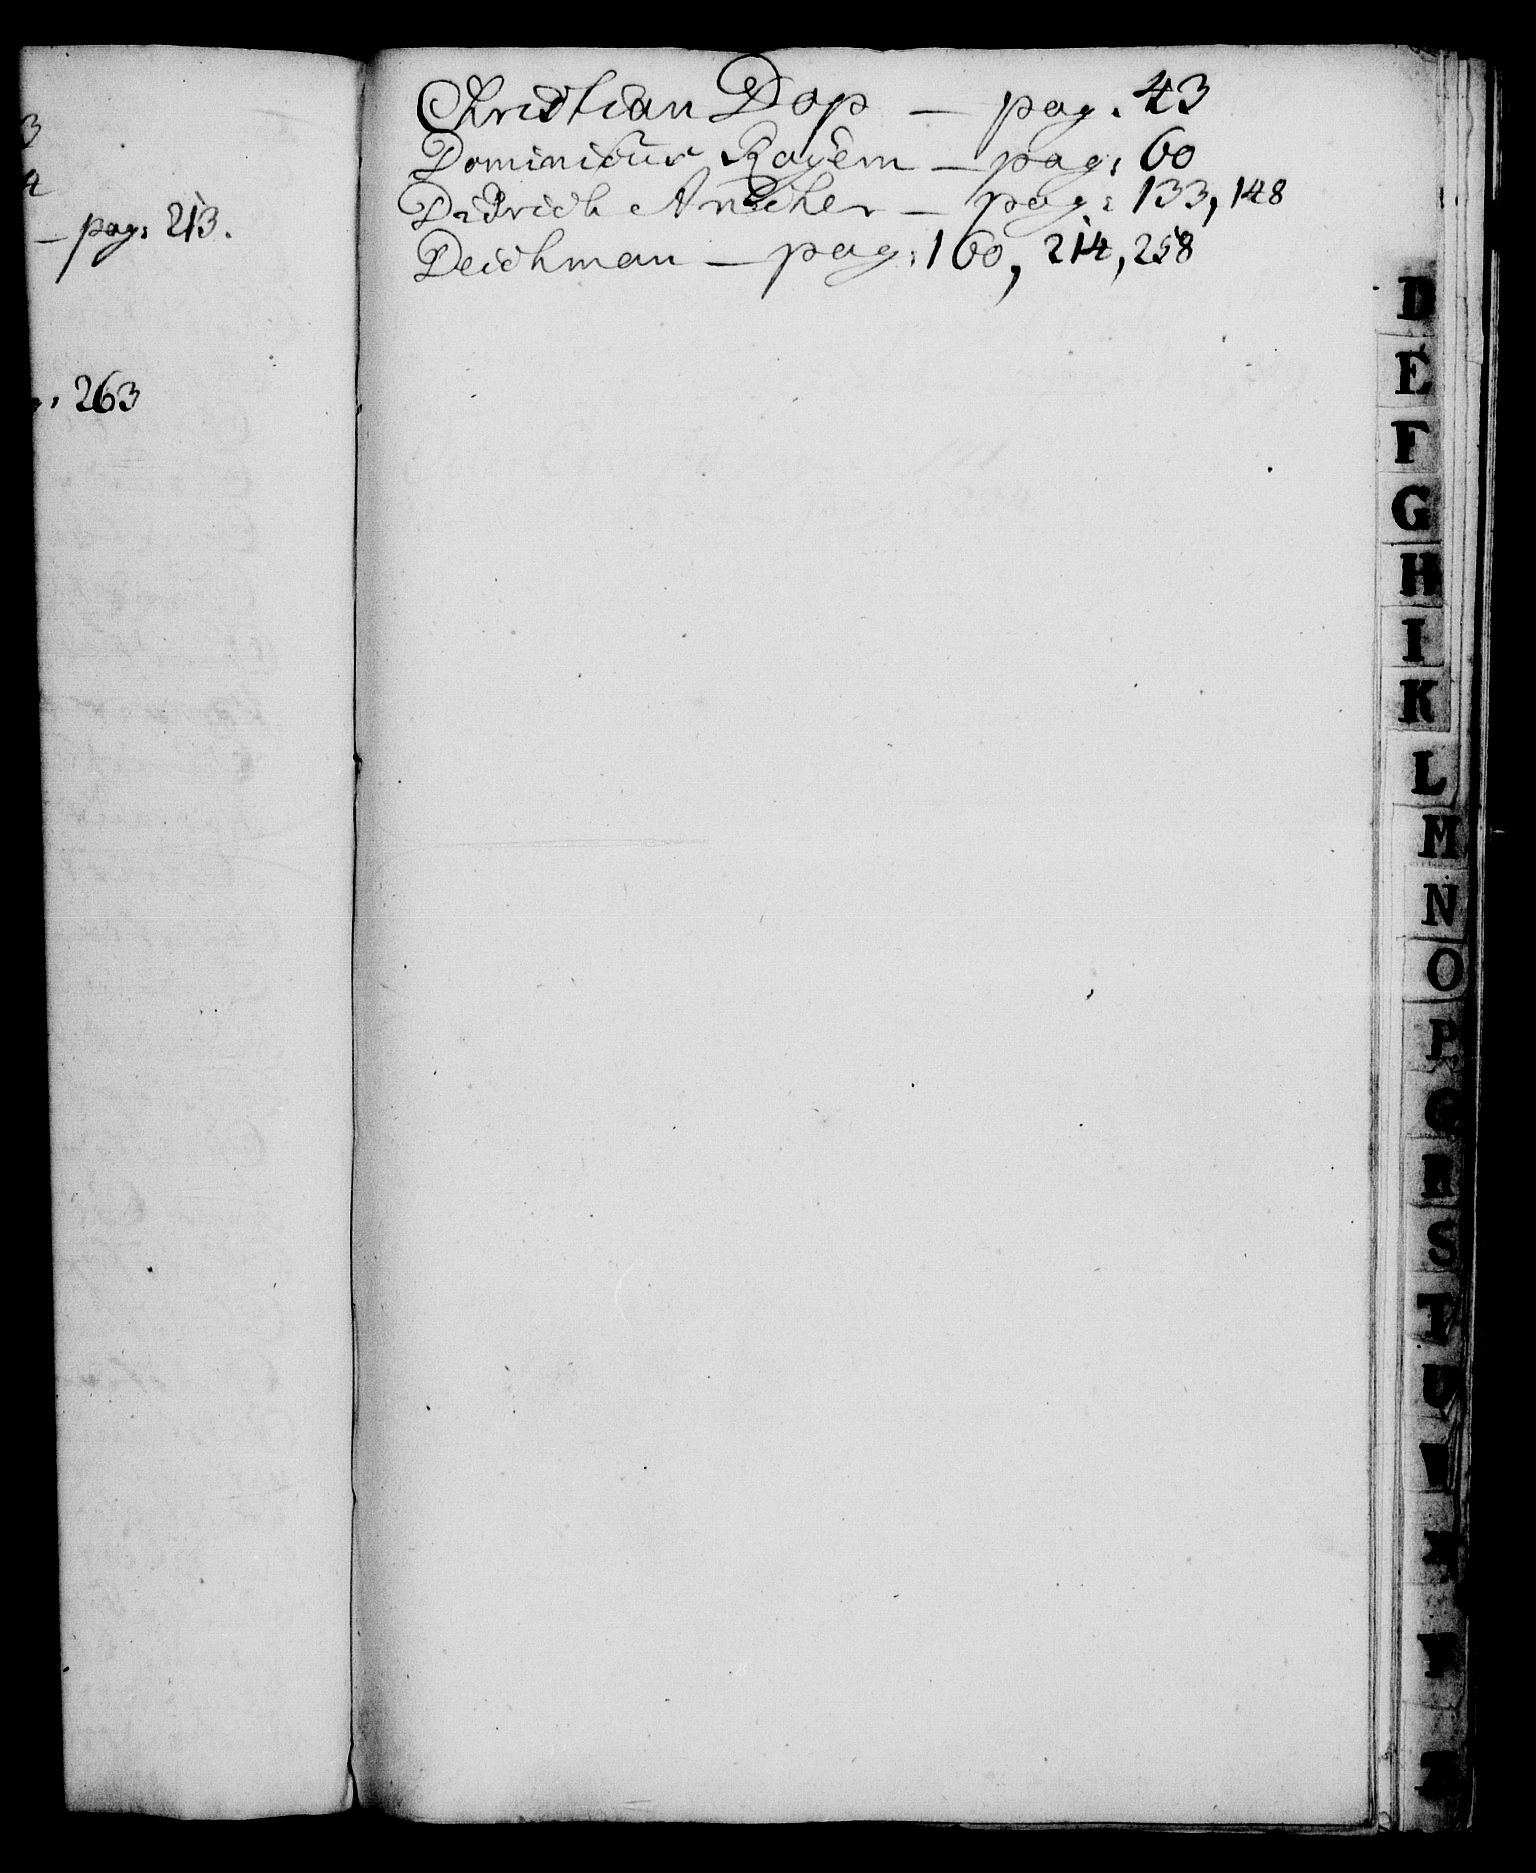 3
4
– pag: 213.
: 263
Christian Dop – pag. 43
Dominicus – pag: 60
Didrich Anscher – pag: 133, 148
Deichman – pag: 160, 214, 258
D
E
F
G
H
I
K
L
M
N
O
P
Q
R
S
T
U